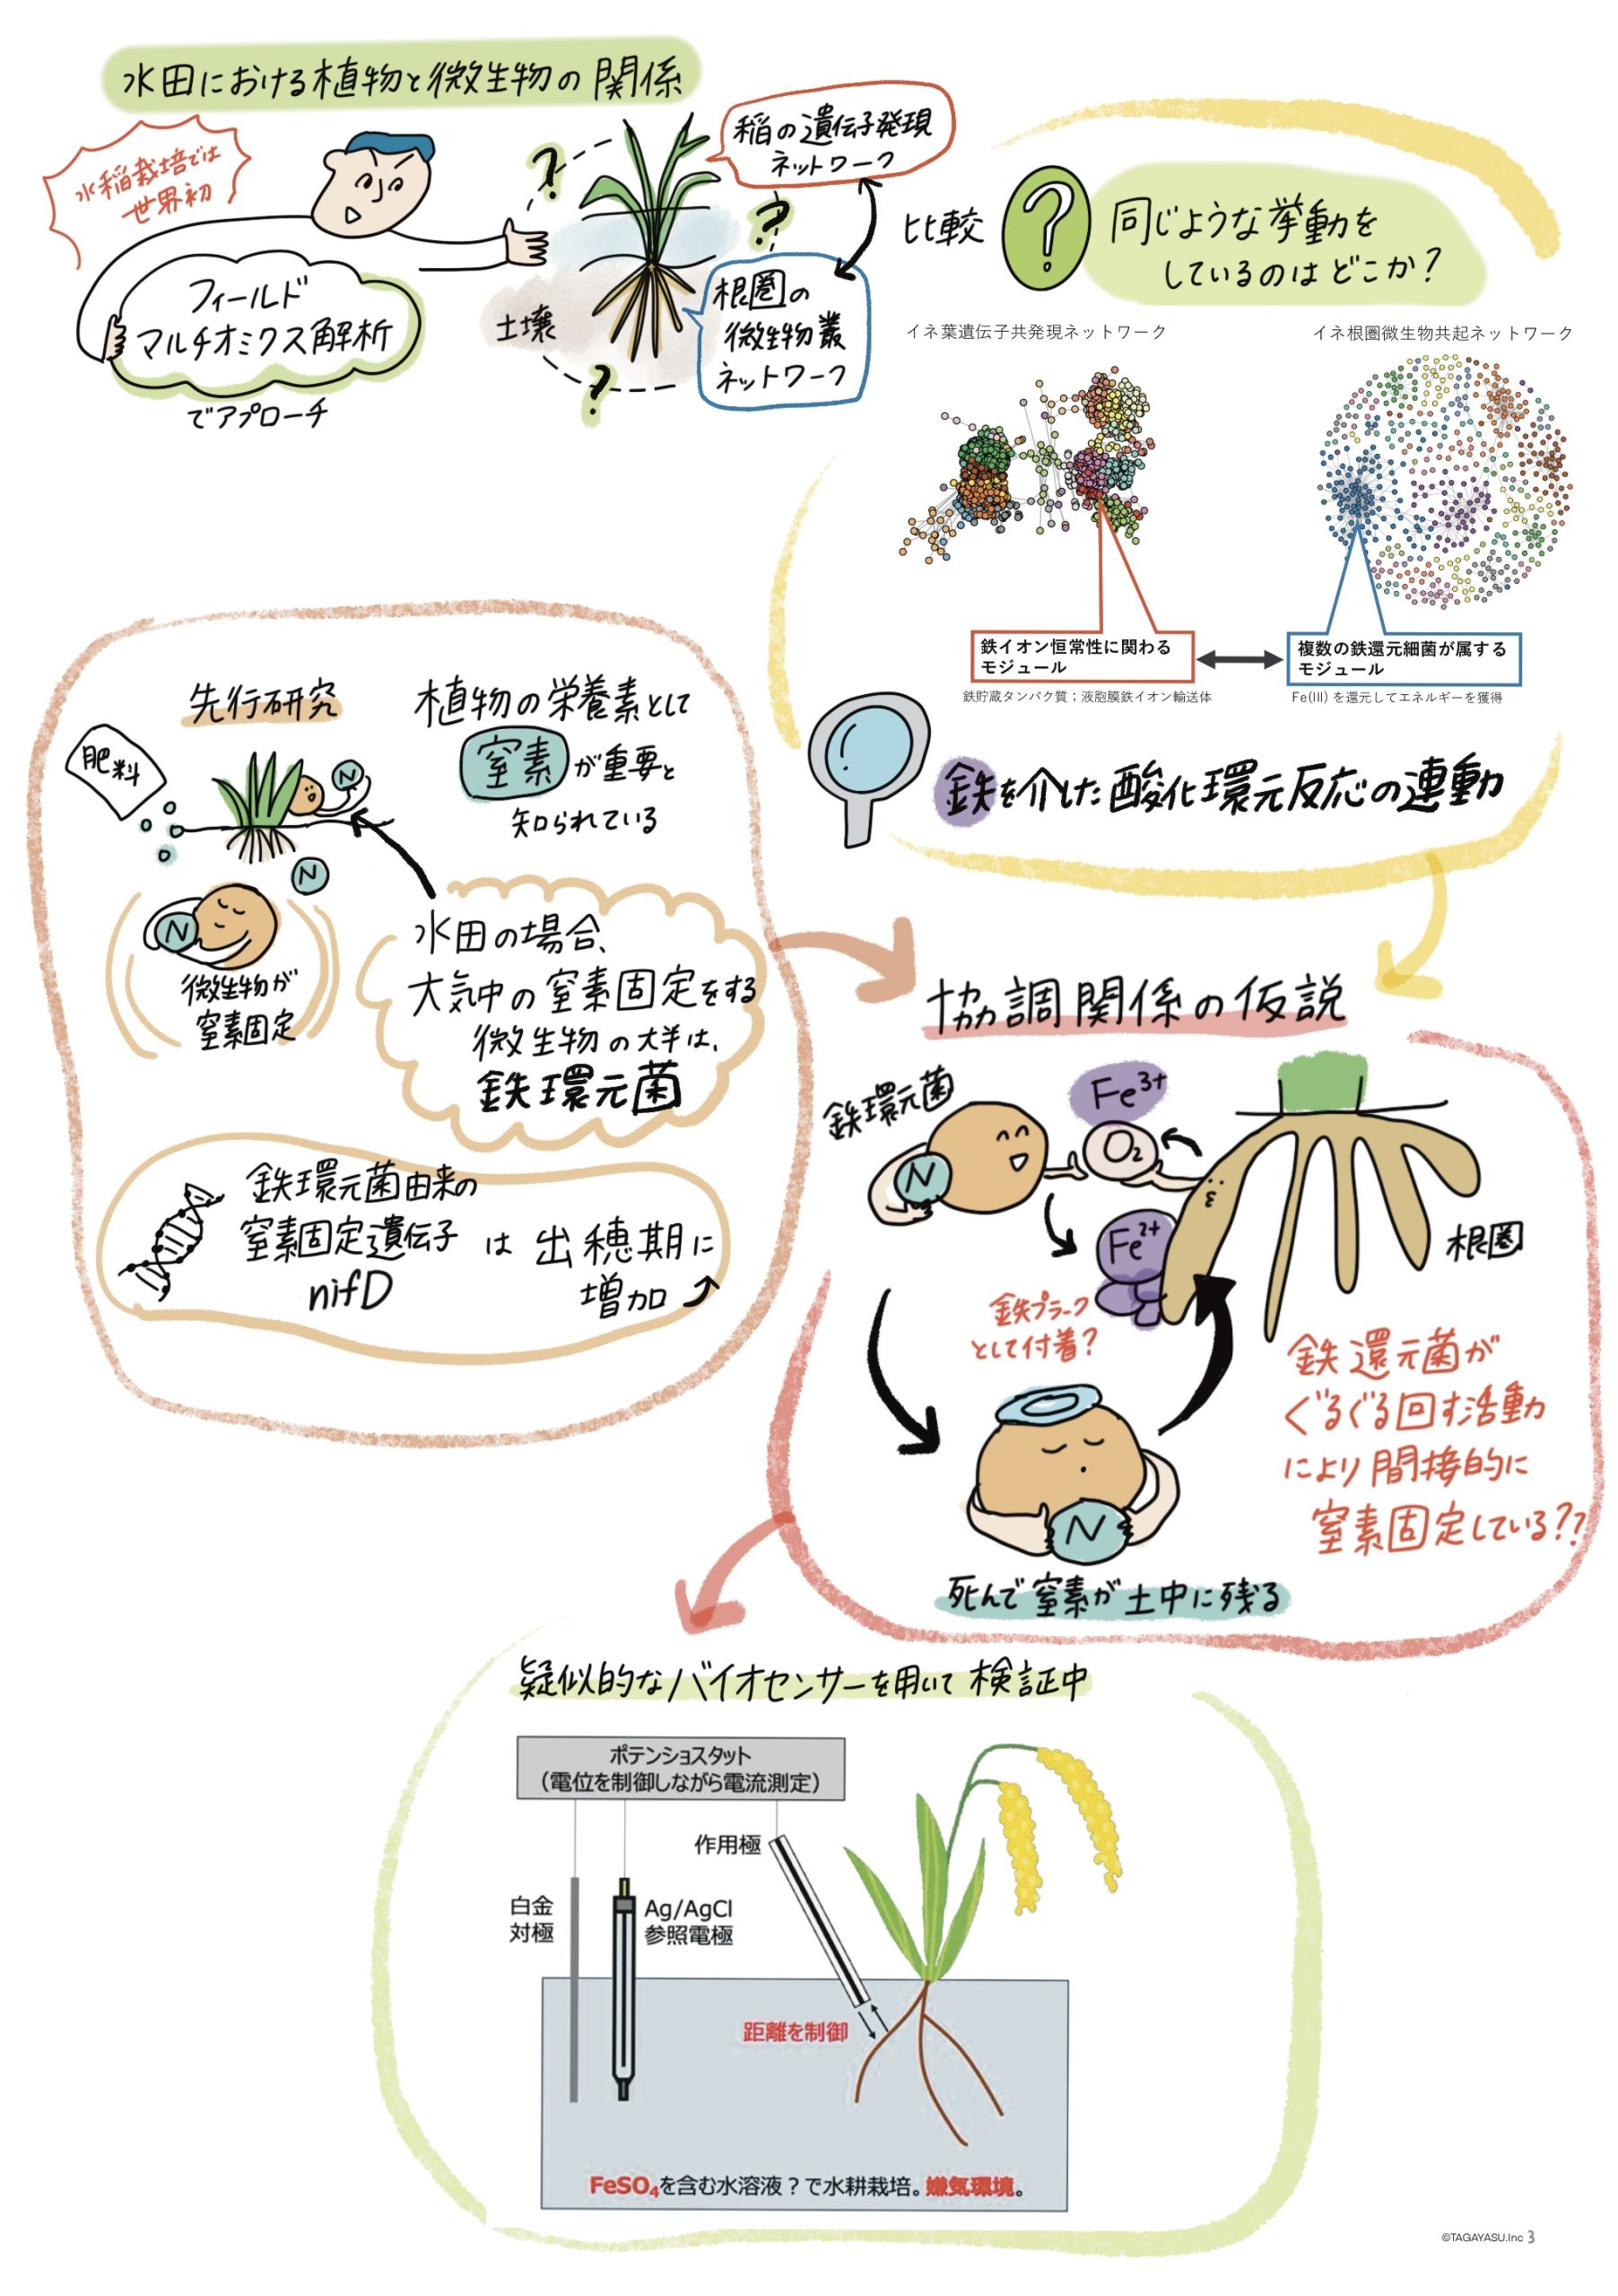 水田における植物と微生物の関係
水稲栽培では
世界初
フィールド
マルチオミクス解析
でアプローチ
?
?
?
土壌
稲の遺伝子発現
ネットワーク
根圏の
微生物叢
ネットワーク
比較
?
同じような挙動を
しているのはどこか?
イネ葉遺伝子共発現ネットワーク
イネ根圏微生物共起ネットワーク
鉄イオン恒常性に関わる
モジュール
鉄貯蔵タンパク質；液胞膜鉄イオン輸送体
複数の鉄還元細菌が属する
モジュール
Fe(III) を還元してエネルギーを獲得
鉄を介した酸化環元反応の連動
先行研究
肥料
N
N
N
微生物が
窒素固定
植物の栄養素として
窒素が重要と
知られている
水田の場合、
大気中の窒素固定をする
微生物の大半は、
鉄環元菌
鉄環元菌由来の
窒素固定遺伝子
nifD
は出穂期に
増加
協調関係の仮説
鉄環元菌
N
Fe3+
O2
Fe2+
根圏
鉄プラーク
として付着?
N
死んで窒素が土中に残る
鉄還元菌が
ぐるぐる回す活動
により間接的に
窒素固定している??
疑似的なバイオセンサーを用いて検証中
ポテンショスタット
（電位を制御しながら電流測定）
作用極
白金
対極
Ag/AgCl
参照電極
距離を制御
FeSO₄を含む水溶液？で水耕栽培。嫌気環境。
©TAGAYASU.Inc 3